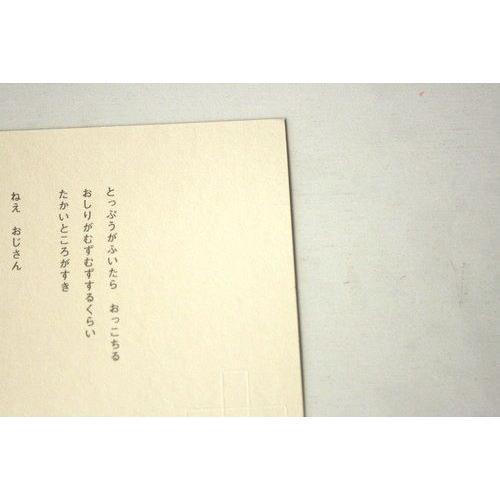 とっぷうがふいたら　おっこちる
おしりがむずむずするくらい
たかいところがすき
ねえ　おじさん